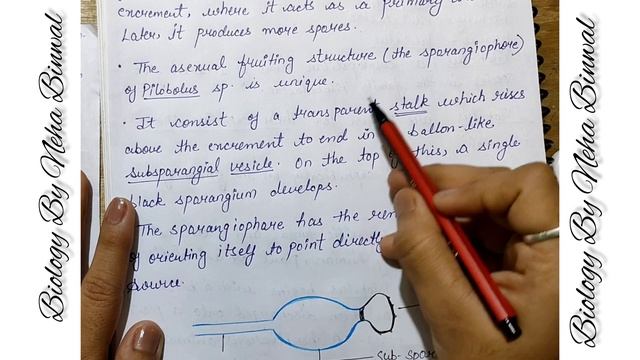 Biology By Neha Binwal
excrement, where it acts as a primary
Later, it produces more spores.
• The asexual fruiting structure (the sporangiophore)
of Pilobolus sp. is unique.
• It consist of a transparent stalk which rises
above the excrement to end in a ballon-like,
subsporangial vesicle. On the top of this, a single
black sporangium develops.
The sporangiophore has the
of orienting itself to point directly
source.
sub-spor
Biology By Neha Binwal